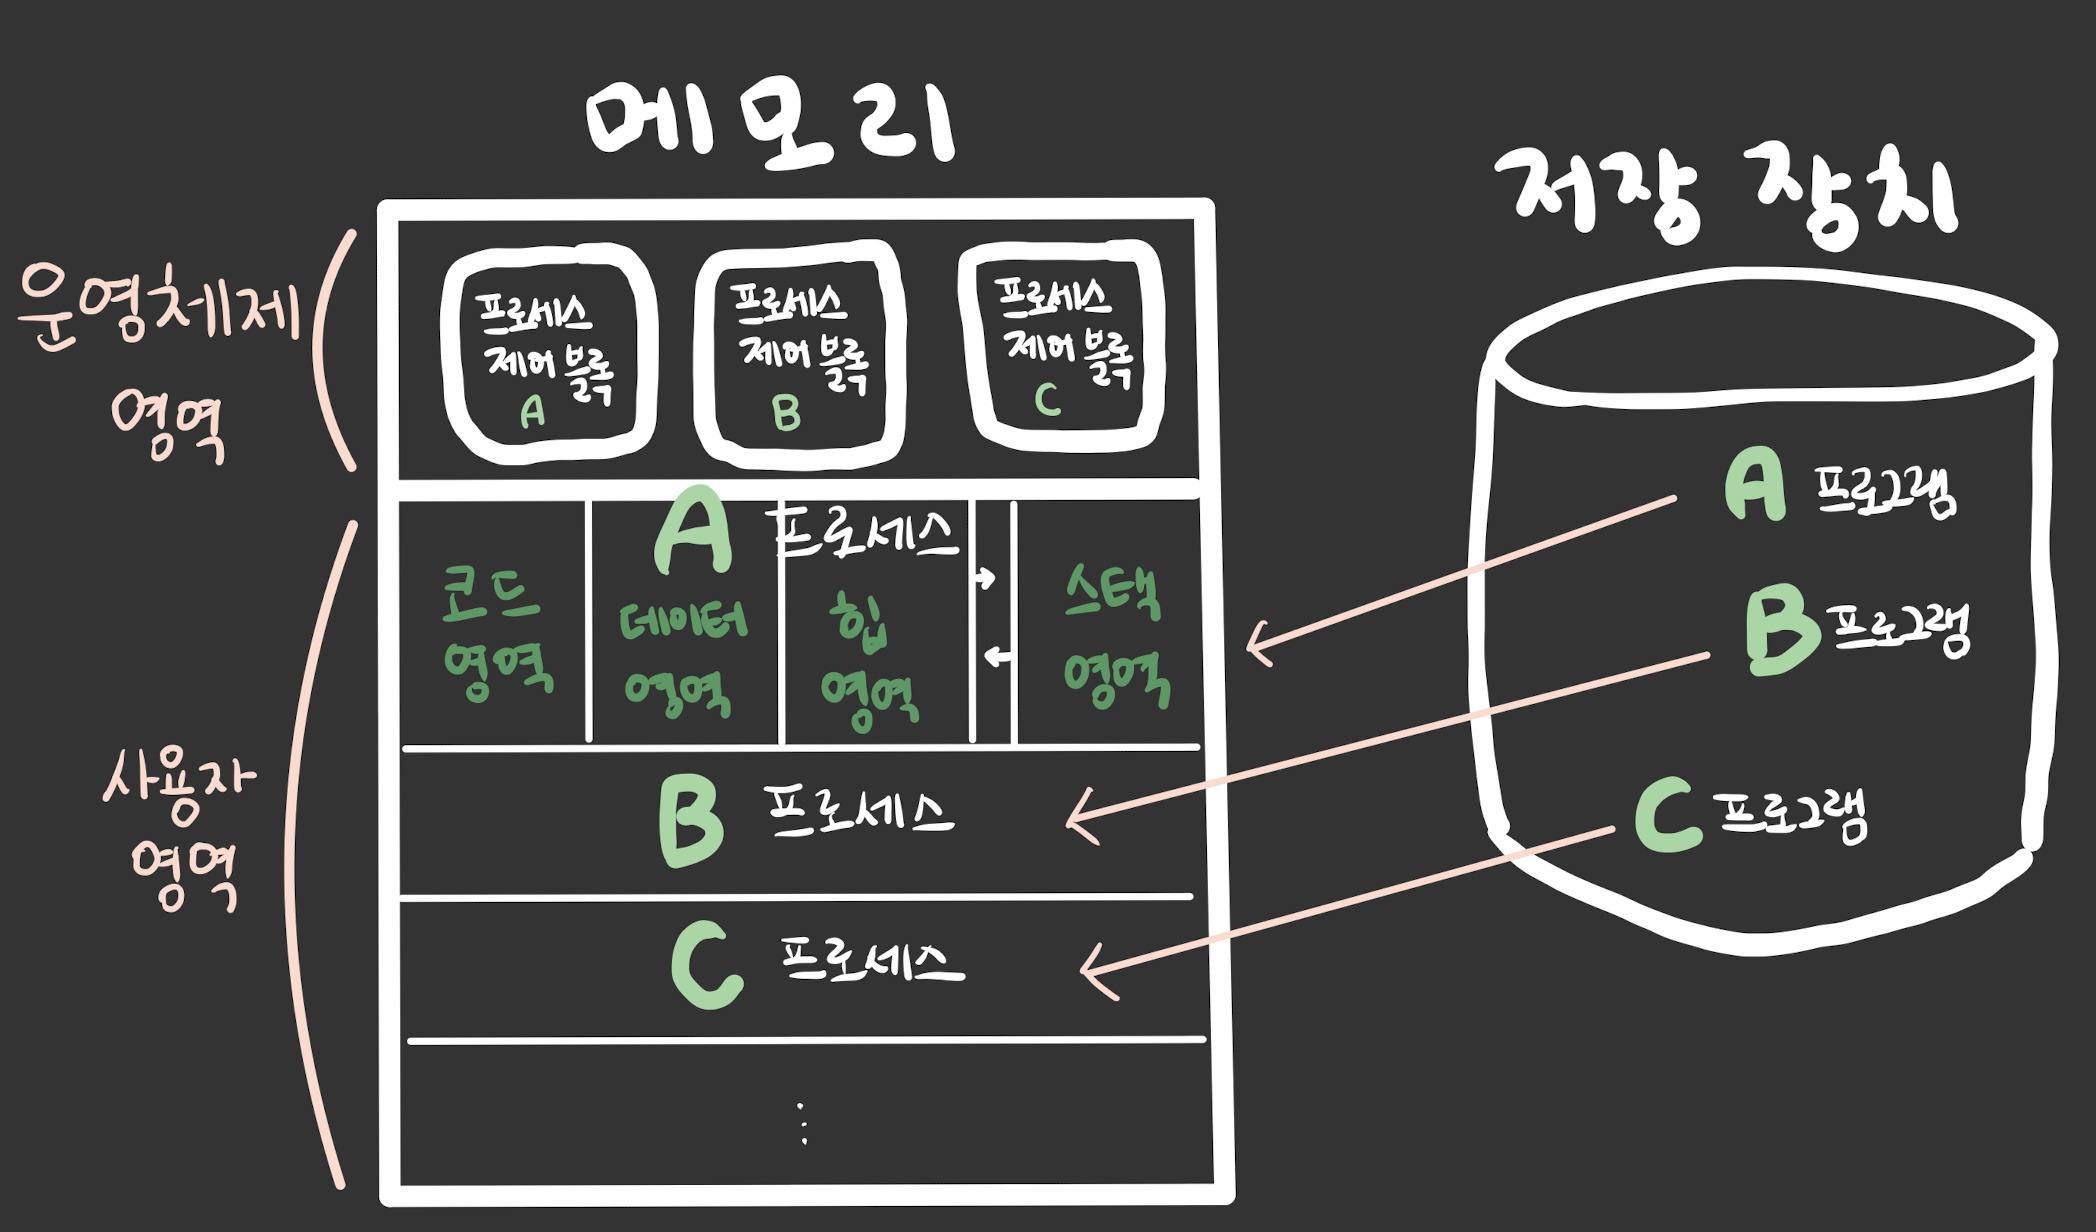 메모리
저장 장치
운영체제
영역
프로세스
제어 블록
A
프로세스
제어 블록
B
프로세스
제어 블록
C
A 프로세스
코드
영역
데이터
영역
힙
영역
스택
영역
사용자
영역
B 프로세스
C 프로세스
⋮
A 프로그램
B 프로그램
C 프로그램